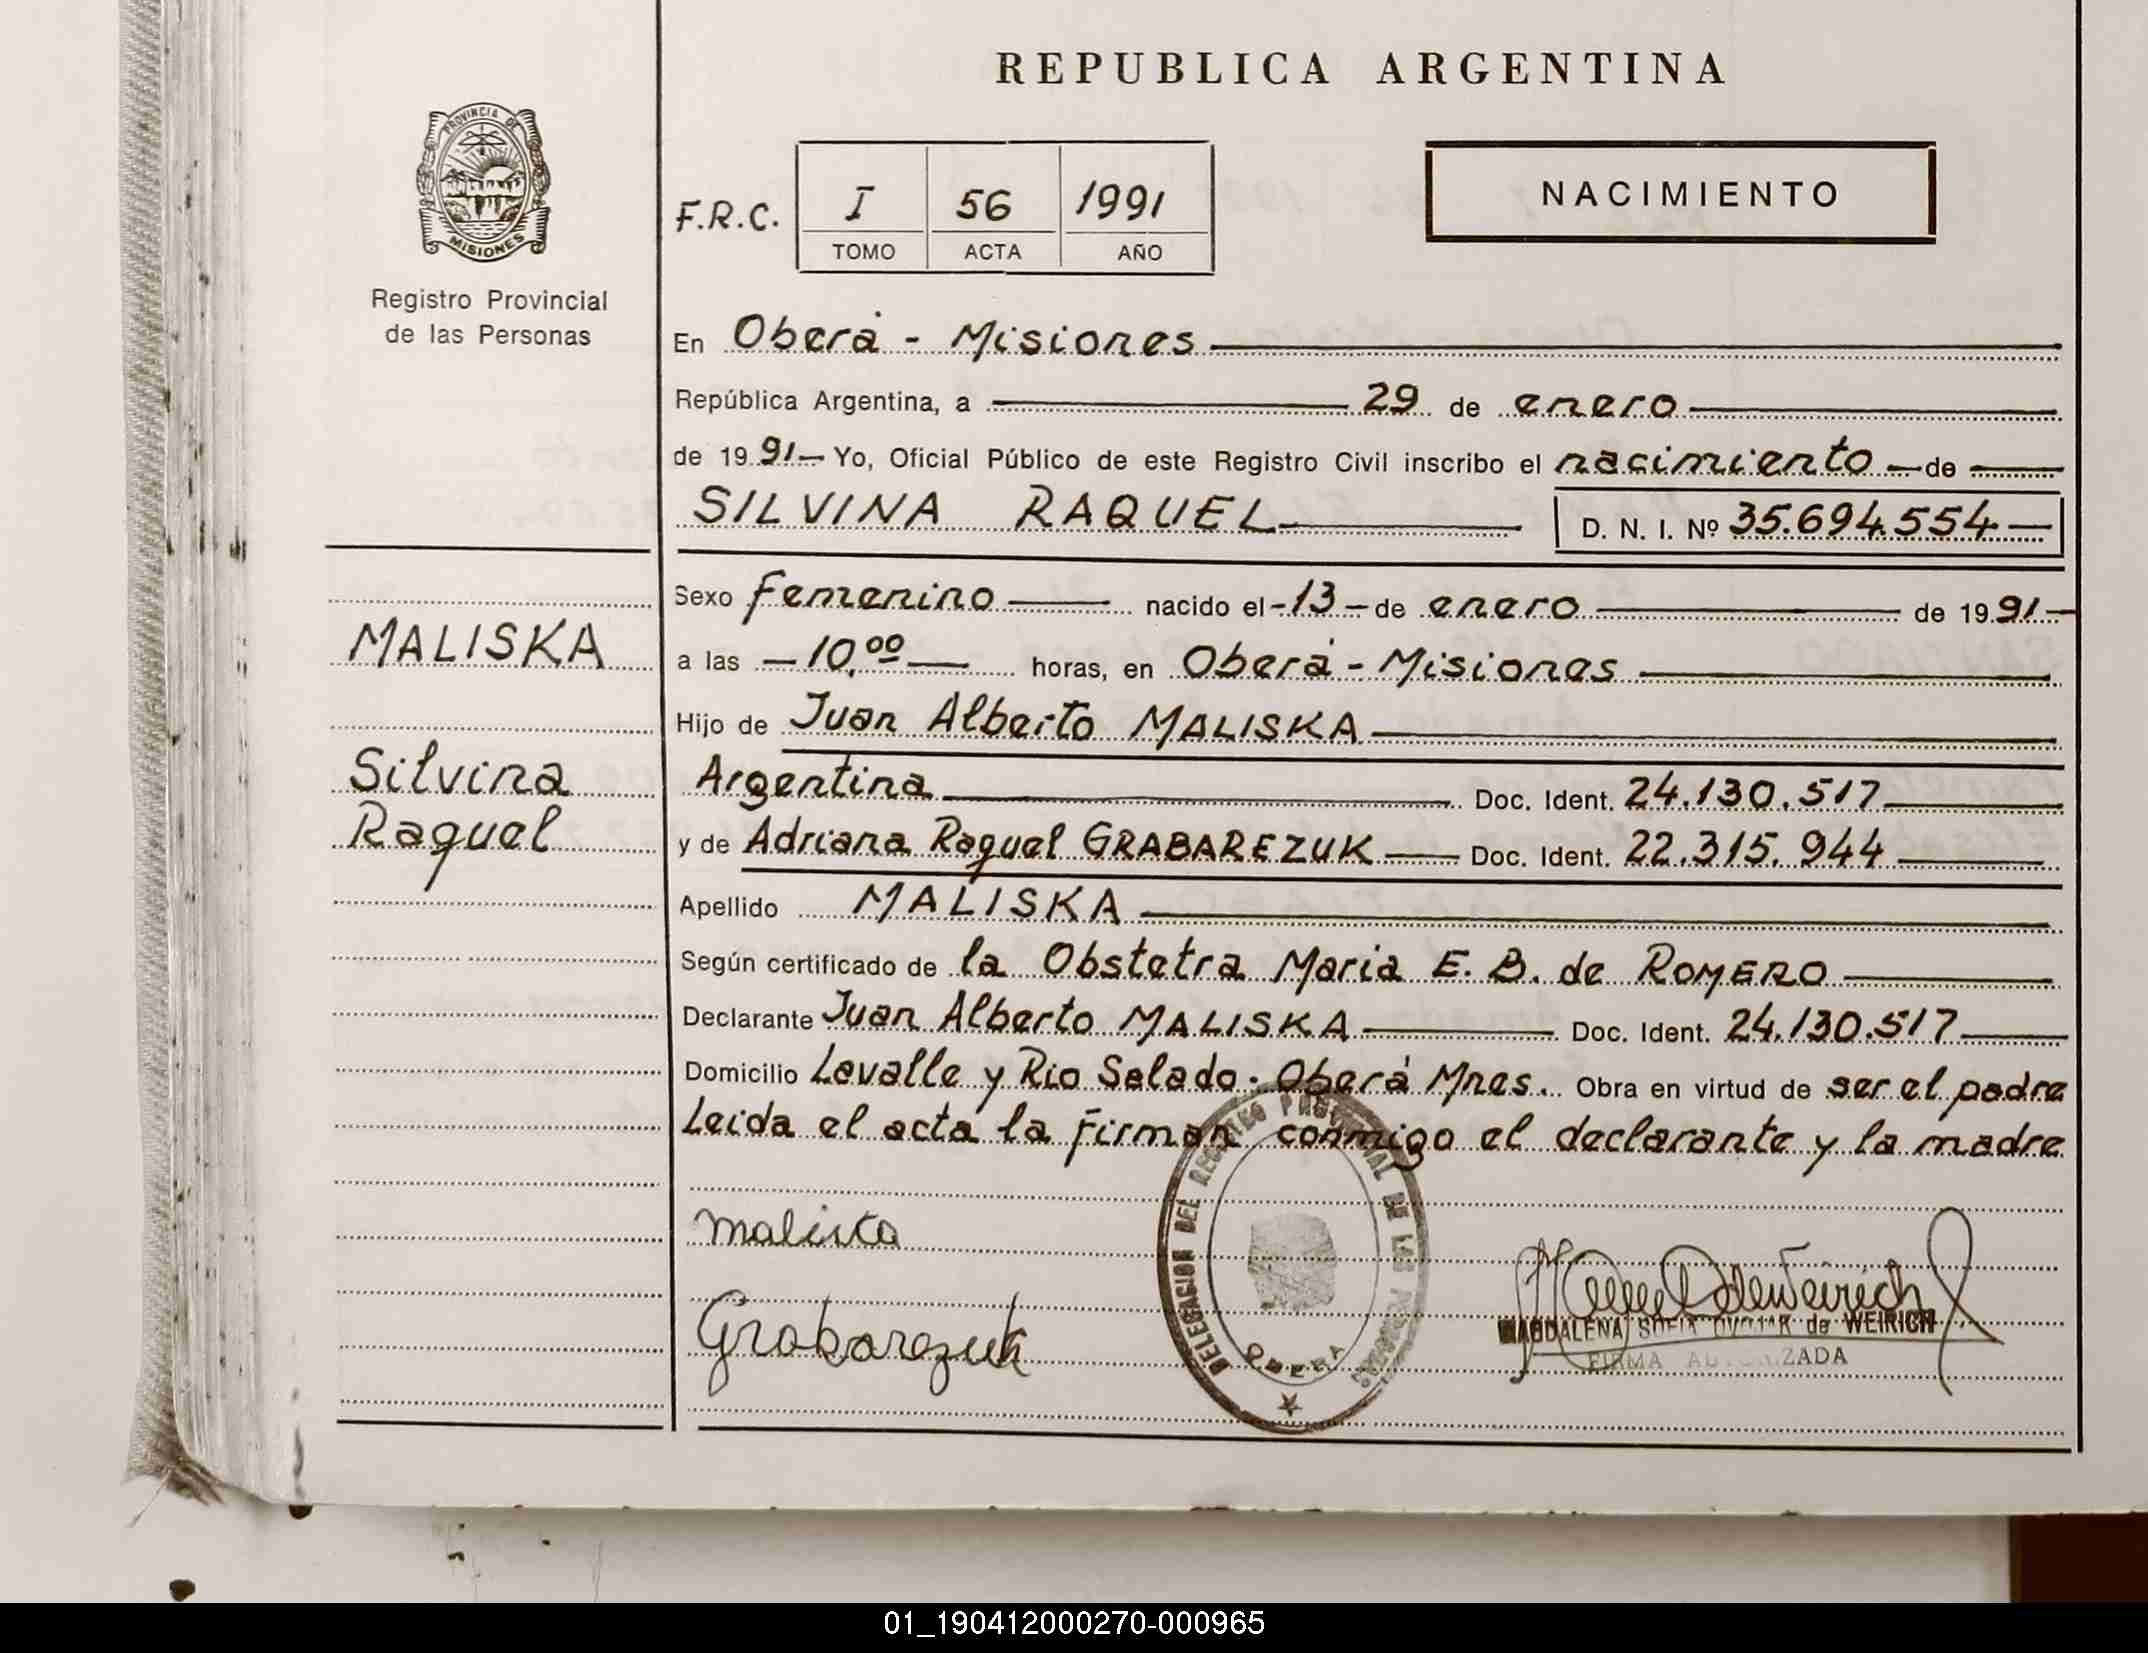 REPUBLICA ARGENTINA
PROVINCIA DE
MISIONES
Registro Provincial
de las Personas
F.R.C.
I 56 1991
TOMO ACTA AÑO
NACIMIENTO
En Oberá - Misiones
República Argentina, a 29 de enero
de 1991 Yo, Oficial Público de este Registro Civil inscribo el nacimiento de
SILVINA RAQUEL D. N. I. Nº 35.694.554
MALISKA
Silvina
Raquel
Sexo Femenino nacido el -13- de enero de 1991-
a las -10,00- horas, en Oberá - Misiones
Hijo de Juan Alberto MALISKA
Argentina Doc. Ident. 24.130.517
y de Adriana Raquel GRABAREZUK Doc. Ident. 22.315.944
Apellido MALISKA
Según certificado de la Obstetra Maria E. B. de ROMERO
Declarante Juan Alberto MALISKA Doc. Ident. 24.130.517
Domicilio Lavalle y Rio Salado. Oberá Mnes. Obra en virtud de ser el padre
Leida el acta la firman conmigo el declarante y la madre
Maliska
Grabarezuk
DELEGACION DEL REGISTRO PROVINCIAL DE LAS
OBERA
MAGDALENA SOFIA de WEIRICH
FIRMA AUTORIZADA
01_190412000270-000965